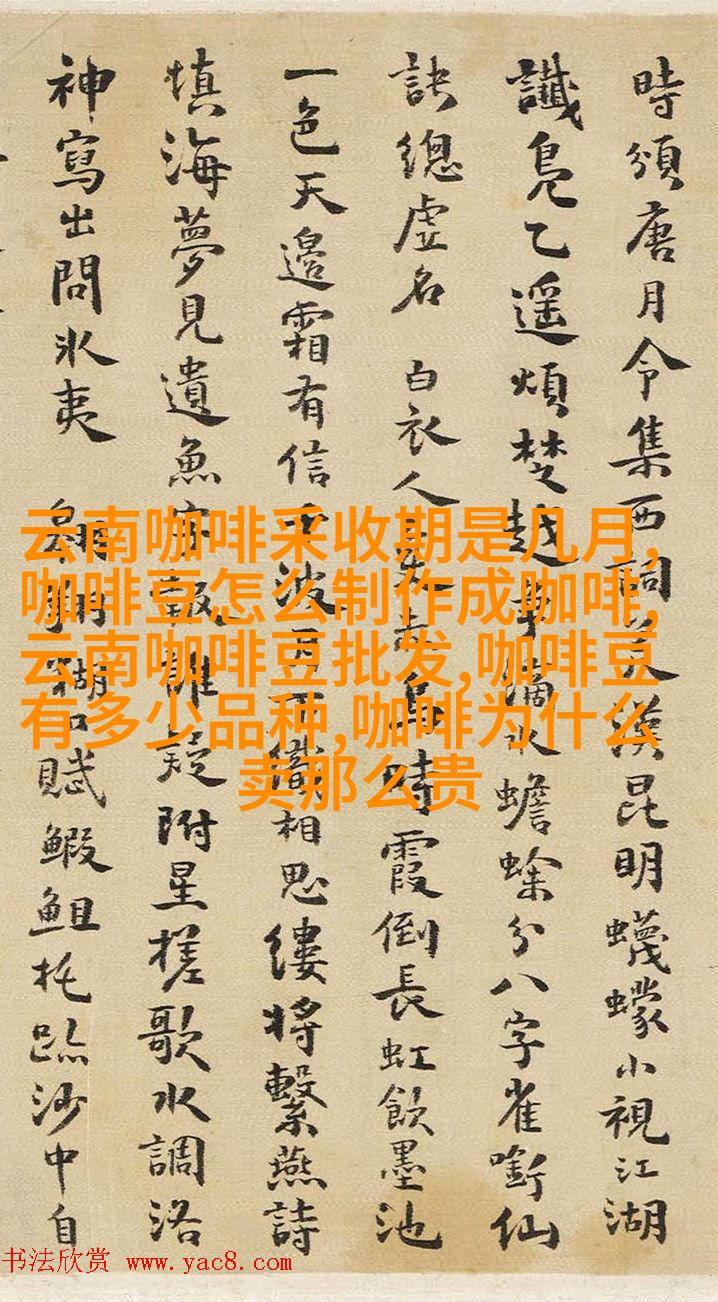 時頒唐月令集西詞美漢昆明蠛蠓小視江湖
讖鳧乙遥煩楚越爭摛水蟾蜍分八字雀銜仙
訣總虛名 白衣人
時霞倒長虹飲墨池
一色天邊霜有信
織相思縷將繫燕詩
填海夢見遺魚
誰疑附星槎歌水調洛
神寫出問冰夷
賦鰕鉏托跡沙中自
云南咖啡采收期是几月,
咖啡豆怎么制作成咖啡,
云南咖啡豆批发,咖啡豆
有多少品种,咖啡为什么
卖那么贵
书法欣赏 www.yac8.com